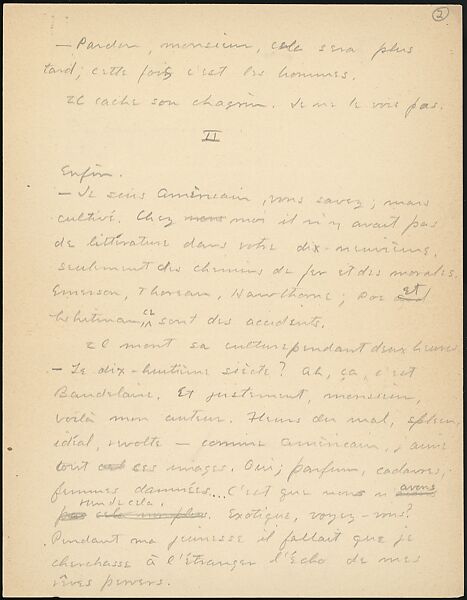 2
— Pardon, monsieur, cela sera plus
tard; cette fois c'est les hommes.
Il cache son chagrin. Je ne le vois pas.
II
Enfin.
— Je suis Américain, vous savez; mais
cultivé. Chez mons moi il n'y avait pas
de littérature dans votre dix-neuvième,
seulement des chemins de fer et des morales.
Emerson, Thoreau, Hawthorne; Poe et
Whitman, ce sont des accidents.
Il ment sa culture pendant deux heures.
— Le dix-huitième siècle? Ah, ça, c'est
Baudelaire. Et justement, monsieur,
voilà mon auteur. Fleurs du mal, spleen,
idéal, révolte — comme Américain, j'aime
tout ces images. Oui; parfum, cadavres,
femmes damnées... C'est que nous n'avons
rien de cela.
pas cela non plus. Exotique, voyez-vous?
Pendant ma jeunesse il fallait que je
cherchasse à l'Étranger l'Écho de mes
rêves pervers.